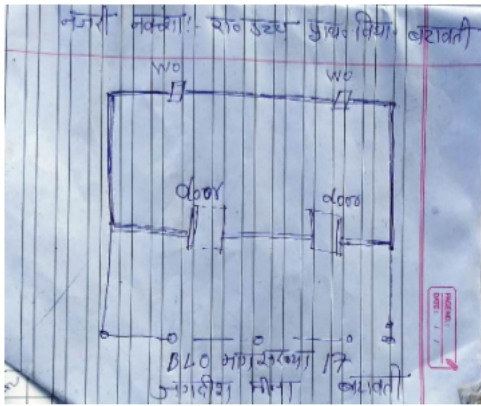 नजरी नक्शा:- रा० उच्च प्राथ० विद्या० बरावती
WO
WO
door
door
BLO भाग संख्या 17
जगदीश मीना बरावती
PAGE NO.:
DATE: / /